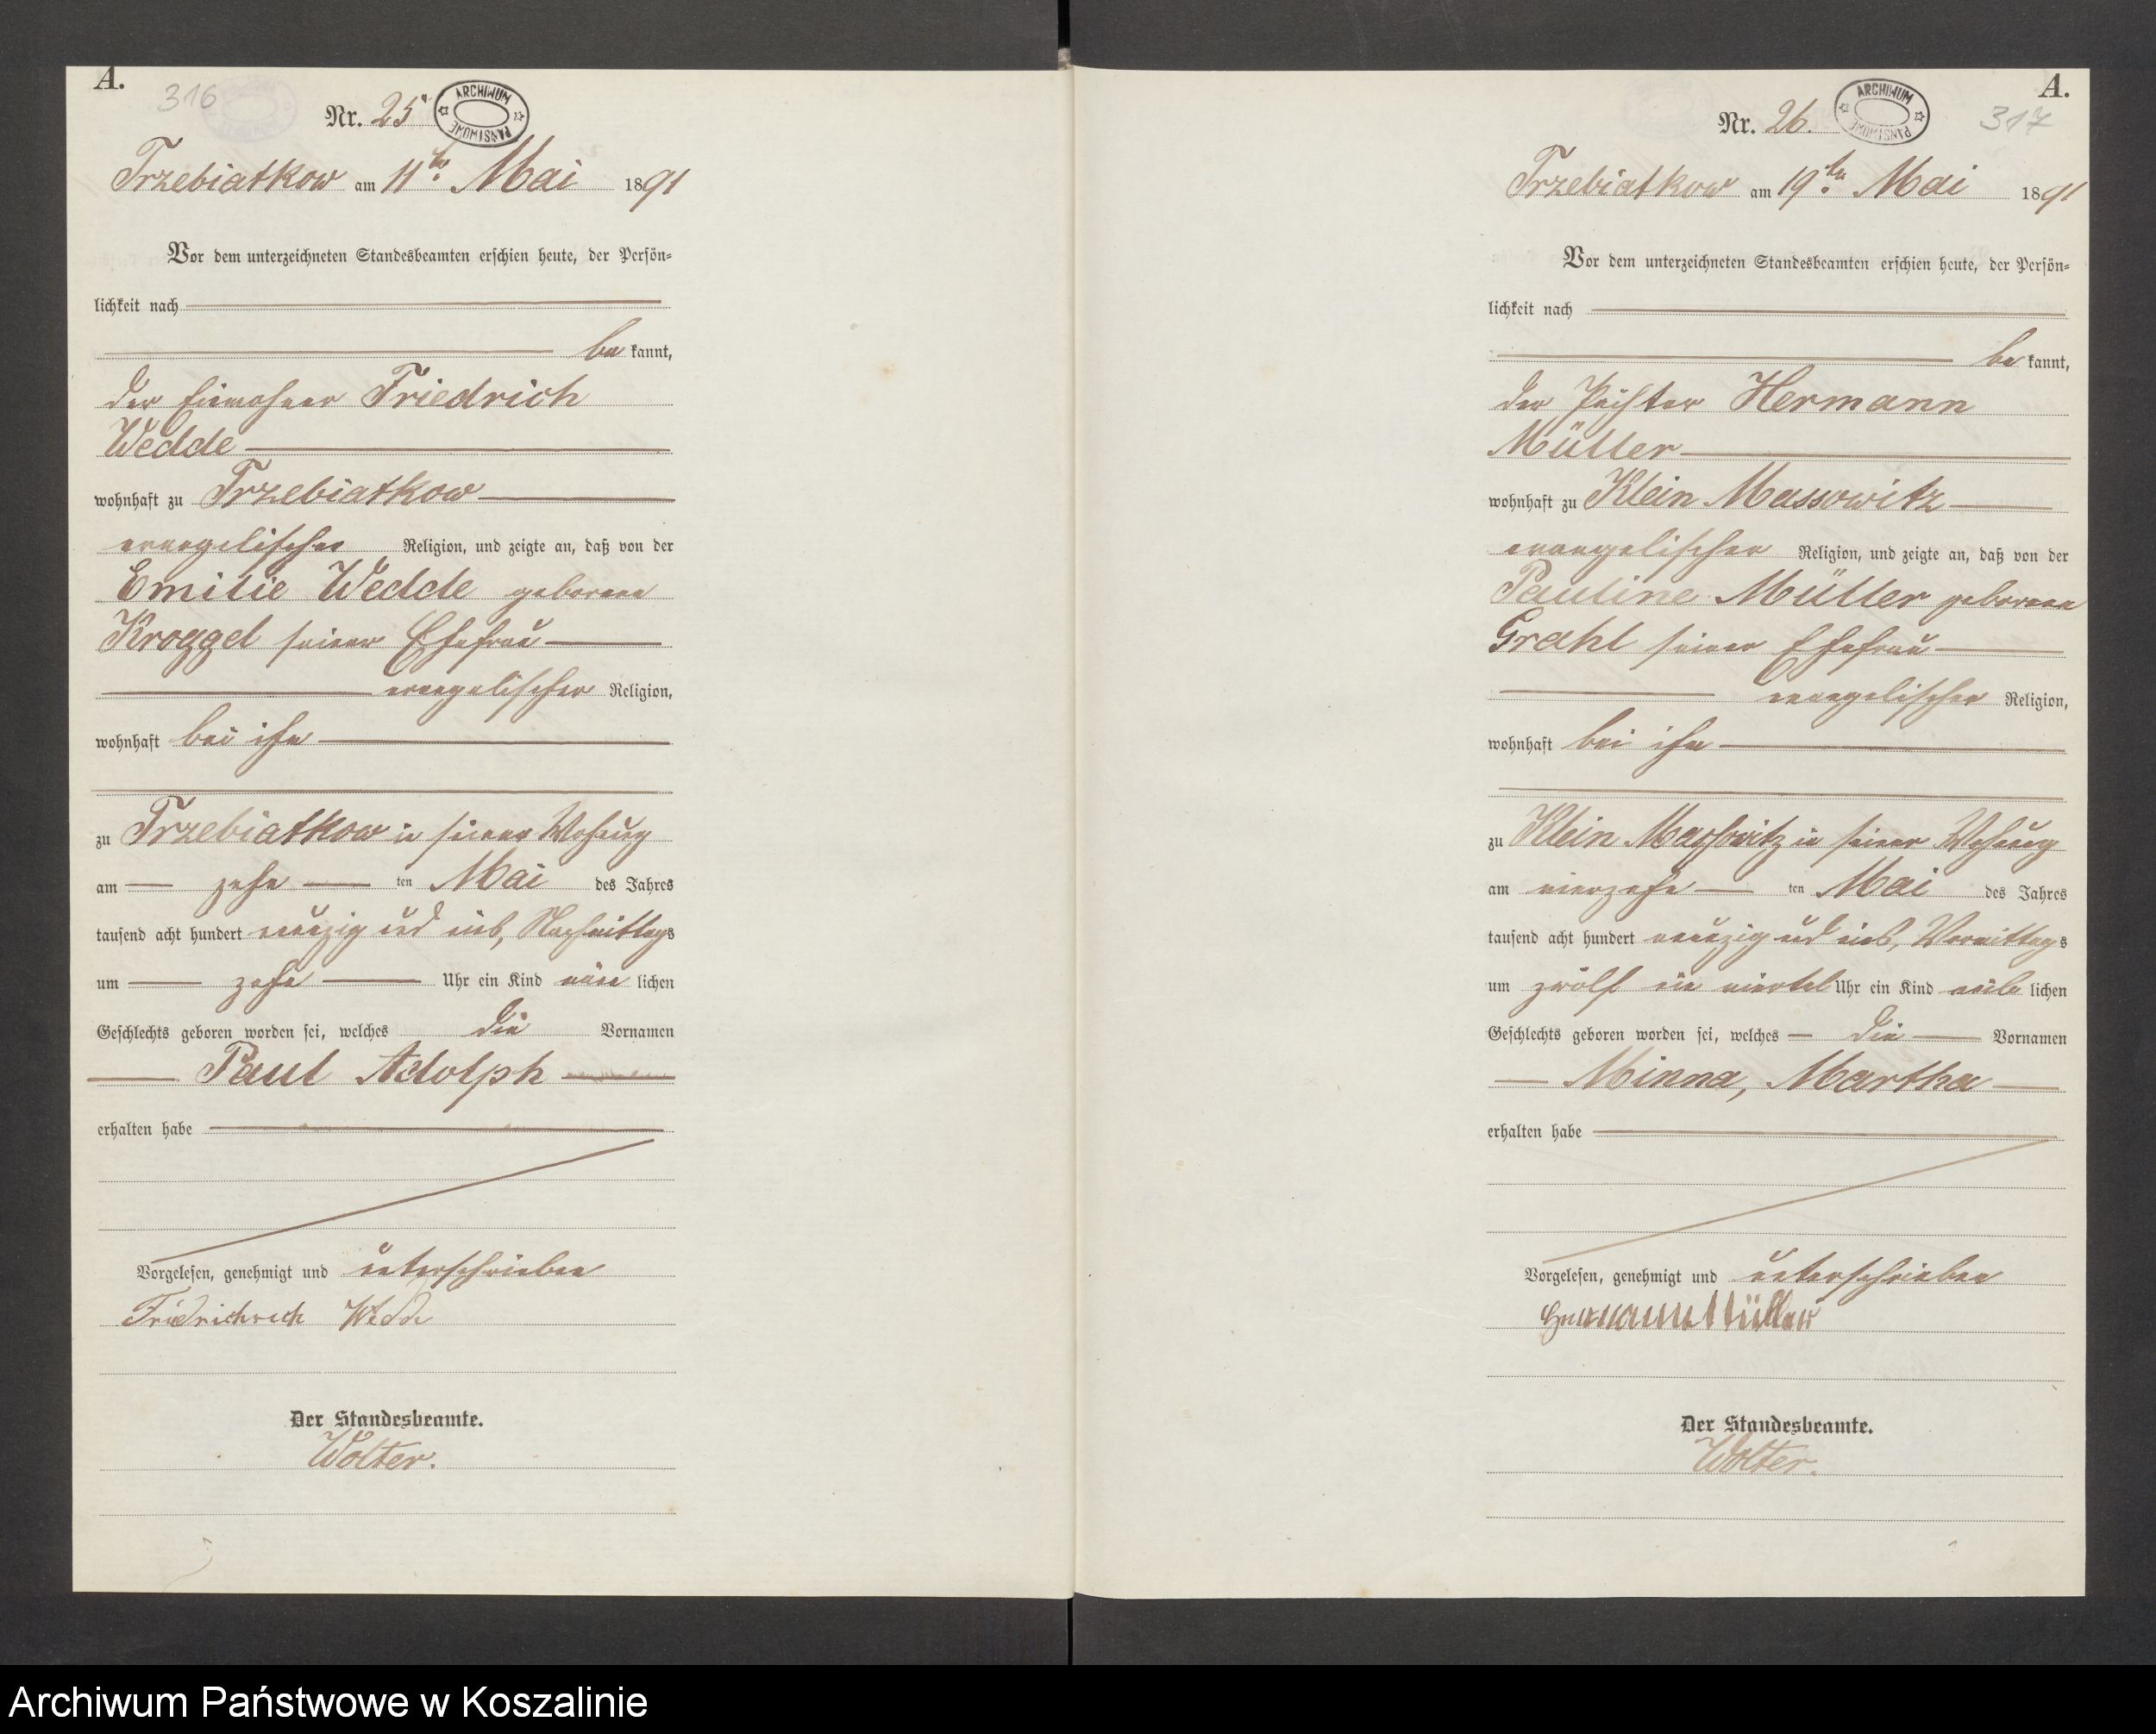 A.
316
Nr. 25
ARCHIWUM PAŃSTWOWE
Trzebiatkow am 11ten Mai 1891
Vor dem unterzeichneten Standesbeamten erschien heute, der Persön-
lichkeit nach
be kannt,
der Einwohner Friedrich
Wedde
wohnhaft zu Trzebiatkow
evangelischer Religion, und zeigte an, daß von der
Emilie Wedde geborene
Kroggel seiner Ehefrau
evangelischer Religion,
wohnhaft bei ihm
zu Trzebiatkow in seiner Wohnung
am zehn ten Mai des Jahres
tausend acht hundert neunzig und eins, Nachmittags
um zehn Uhr ein Kind männ lichen
Geschlechts geboren worden sei, welches die Vornamen
Paul Adolph
erhalten habe
Vorgelesen, genehmigt und unterschrieben
Wedde
Der Standesbeamte.
Wolter.
A.
317
Nr. 26.
ARCHIWUM PAŃSTWOWE
Trzebiatkow am 19ten Mai 1891
Vor dem unterzeichneten Standesbeamten erschien heute, der Persön-
lichkeit nach
be kannt,
der Pächter Hermann
Müller
wohnhaft zu Klein Massowitz
evangelischer Religion, und zeigte an, daß von der
Pauline Müller geborene
Grahl seiner Ehefrau
evangelischer Religion,
wohnhaft bei ihm
zu Klein Massowitz in seiner Wohnung
am vierzehn ten Mai des Jahres
tausend acht hundert neunzig und eins, Vormittags
um zwölf ein viertel Uhr ein Kind weib lichen
Geschlechts geboren worden sei, welches die Vornamen
Minna, Martha
erhalten habe
Vorgelesen, genehmigt und unterschrieben
Hermann Müller
Der Standesbeamte.
Wolter.
Archiwum Państwowe w Koszalinie